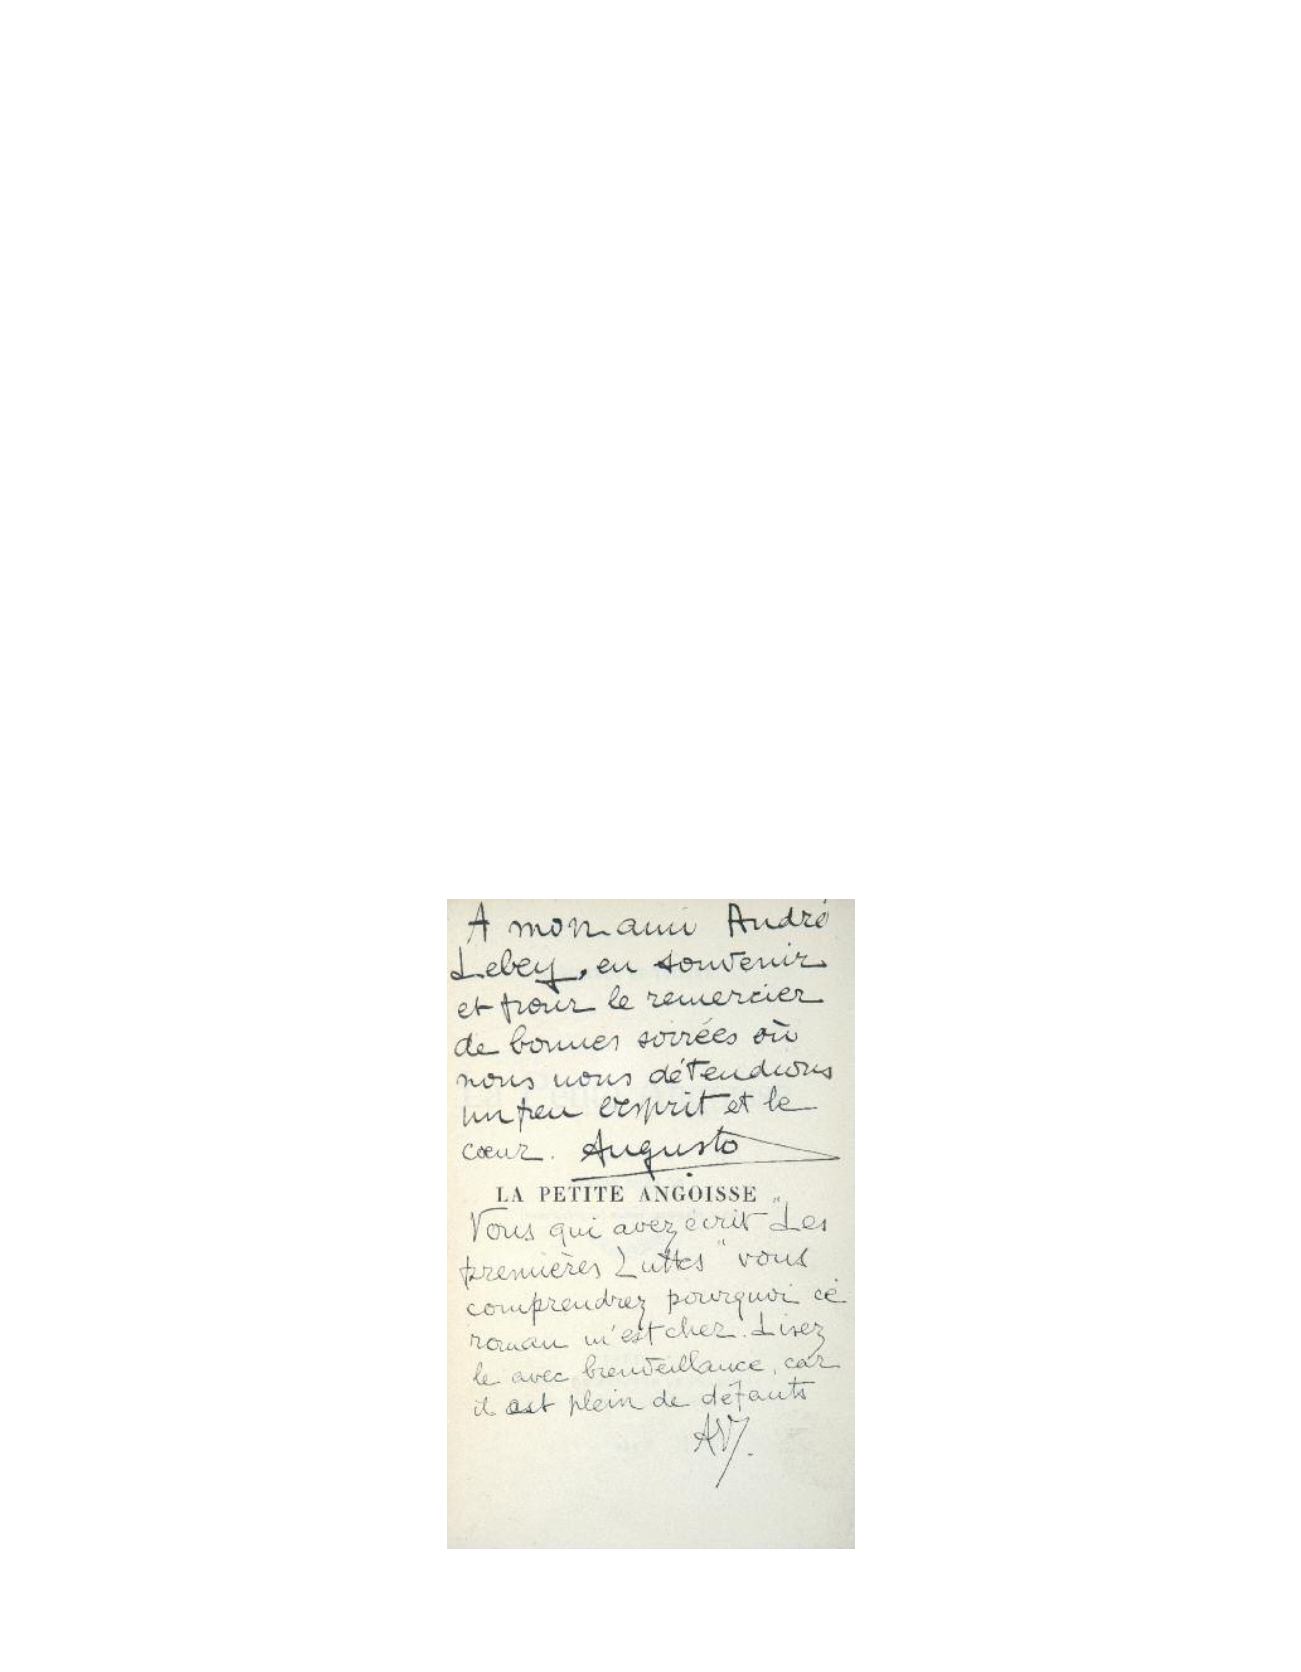 A mon ami André
Lebey, en souvenir
et pour le remercier
de bonnes soirées où
nous nous détendions
un peu l'esprit et le
cœur. Augusto
LA PETITE ANGOISSE
Vous qui avez écrit "Les
premières Luttes" vous
comprendrez pourquoi ce
roman m'est cher. Lisez
le avec bienveillance, car
il est plein de défauts
AV.